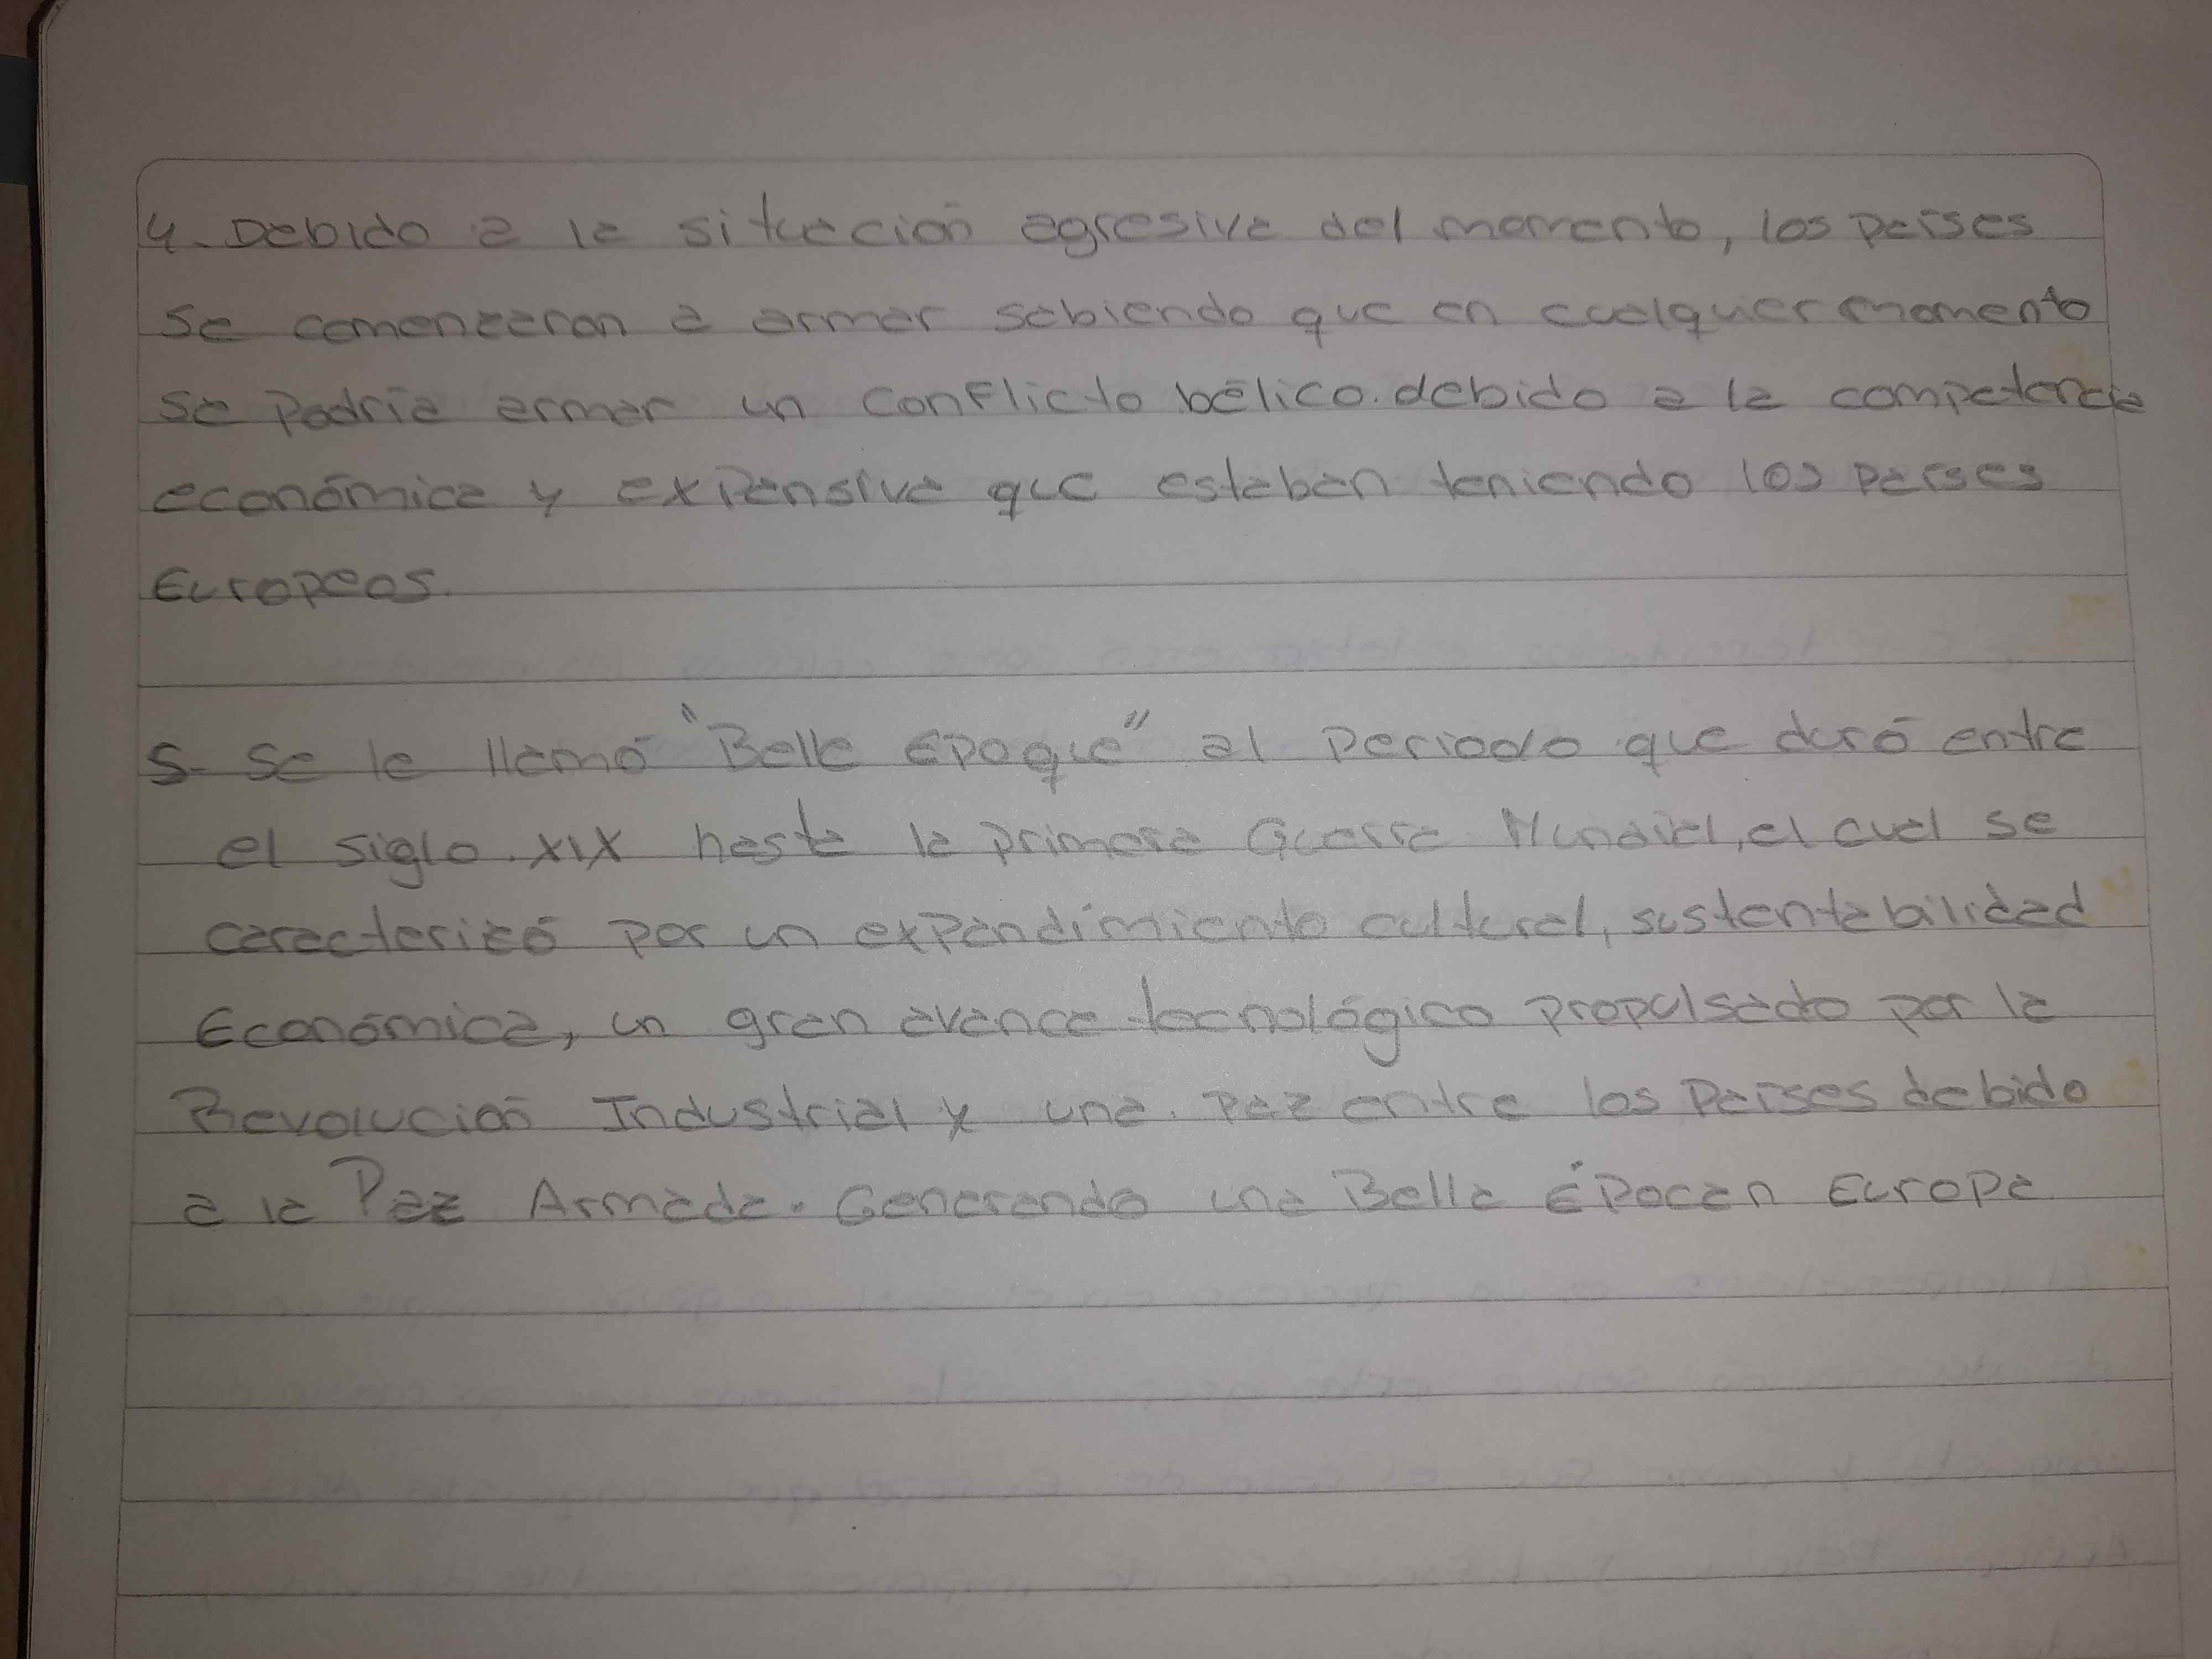 4. Debido a la situación agresiva del momento, los países
se comenzaron a armar sabiendo que en cualquier momento
se podría armar un conflicto bélico. debido a la competencia
económica y expansiva que estaban teniendo los países
Europeos.
5- Se le llamó "Belle Epoque" al periodo que duró entre
el siglo XIX hasta la primera Guerra Mundial, el cual se
caracterizó por un expandimiento cultural, sustentabilidad
Económica, un gran avance tecnológico propulsado por la
Revolución Industrial y una paz entre los países debido
a la Paz Armada. Generando una Bella Época en Europa